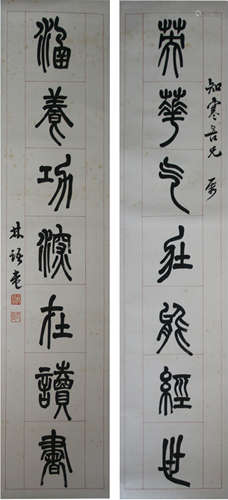 知寒吾兄屬
英華气壯能經世
涵養功深在讀書
林語堂